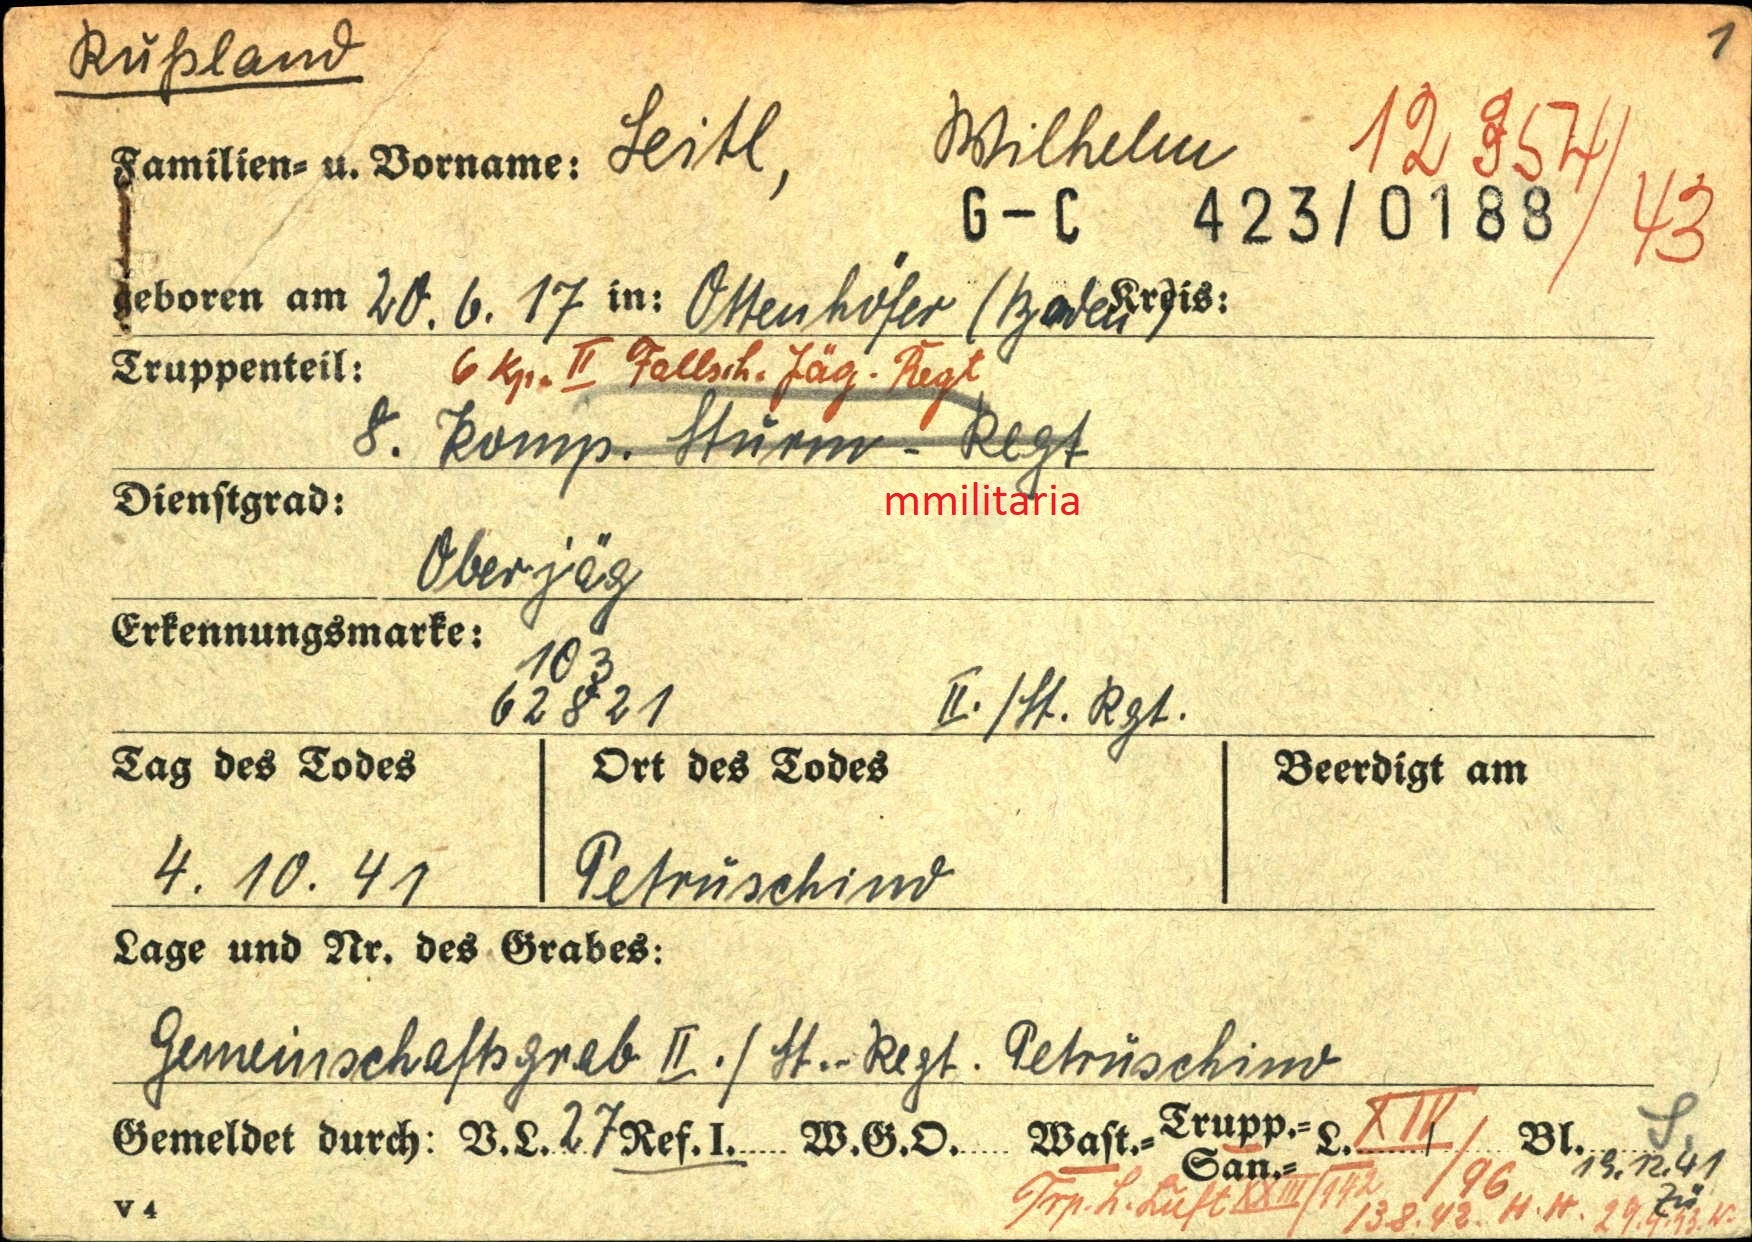 Rußland
1
Familien= u. Vorname: Seitl, Wilhelm
12 954/43
G-C 423/0188
geboren am 20. 6. 17 in: Ottenhöfer (Baden) Kreis:
Truppenteil: 6 Kp. II Fallsch. Jäg. Regt
8. Komp. Sturm - Regt
Dienstgrad:
mmilitaria
Oberjäg
Erkennungsmarke:
103
62821 II./St. Rgt.
Tag des Todes Ort des Todes Beerdigt am
4. 10. 41 Petruschino
Lage und Nr. des Grabes:
Gemeinschaftsgrab II./St.-Regt. Petruschino
Gemeldet durch: V.L. 27 Ref. I. W.G.O. Wast.= Trupp.= San.= L. XIV/96 Bl.
19.12.41
Trp. L. Luft XXIII/142
13.8.42. H.H.
V 4